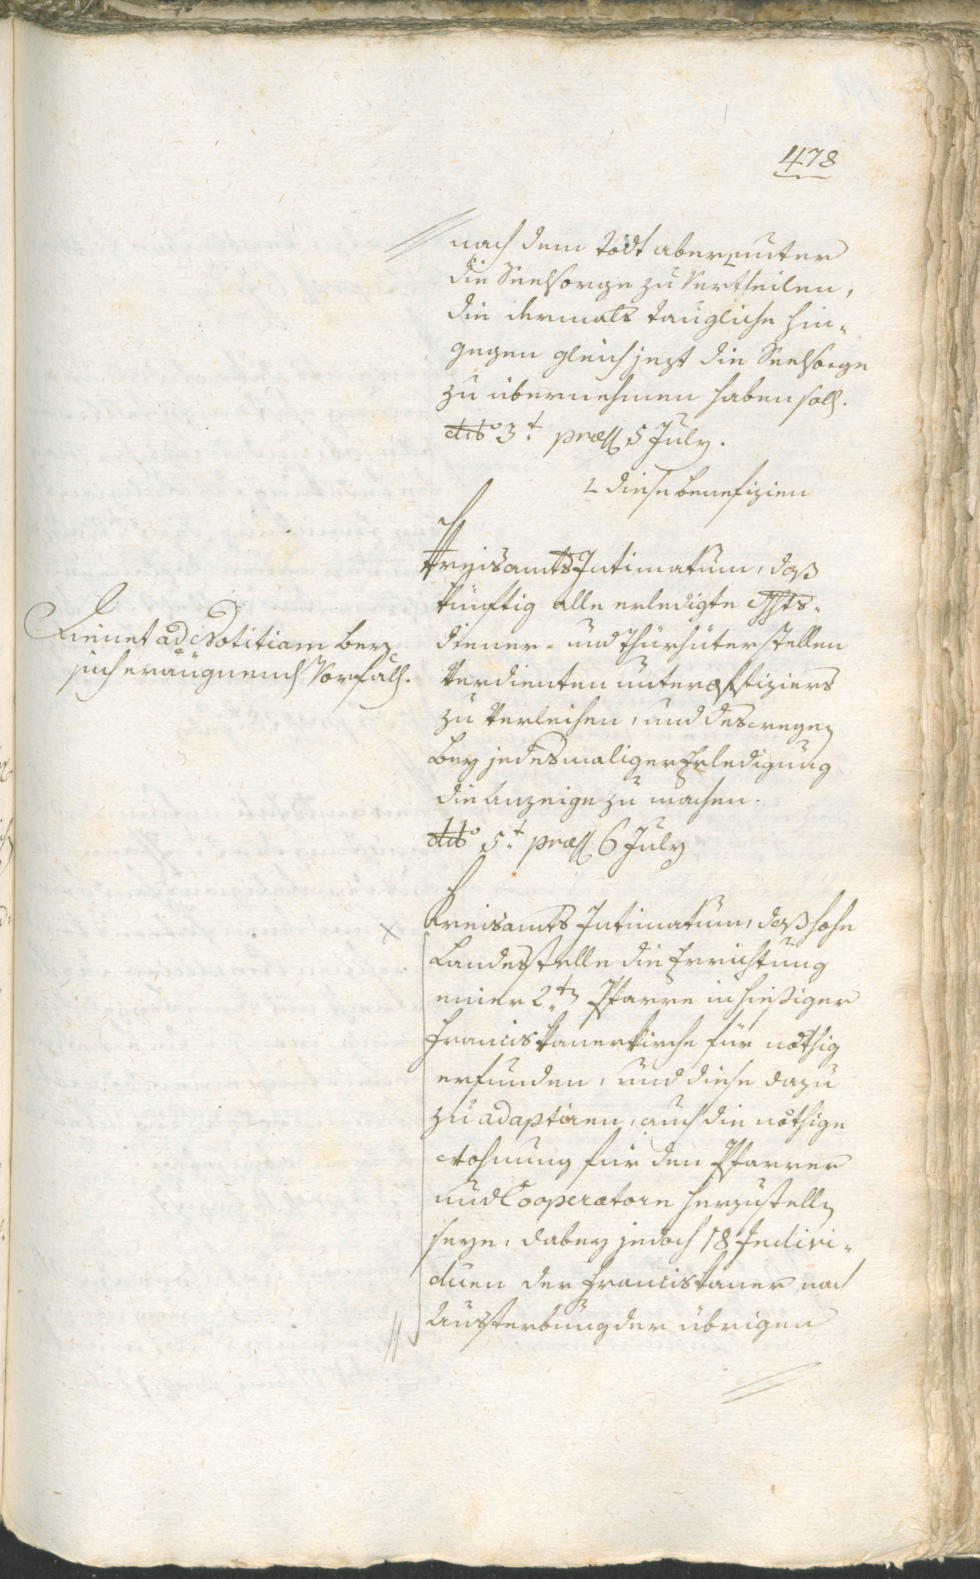 478
nach dem Todt aber unter
die Seelsorge zu vertheilen,
die dermals taugliche hin-
gegen gleich jezt die Seelsorge
zu übernehmen haben soll.
dtto 3t præs 5 July.
2 diese benefizien
Kreisamts Intimatum, daß
künftig alle erledigte Gshts-
diener- und Thürhüterstellen
verdienten unteroffiziers
zu verleihen, und deswegen
bey jedesmaliger Erledigung
die Anzeige zu machen.
dtto 5t præs 6 July
Dienet ad Notitiam bey
sich eräugnend Vorfäll.
Kreisamts Intimatum, daß hohe
Landesstelle die Errichtung
einer 2ten Pfarre in hiesiger
Franciskanerkirche für nöthig
erfunden, und diese dazu
zu adaptiren, auch die nöthige
Wohnung für den Pfarrer
und Cooperatorn herzustelln
seye, dabey jedoch 18 Indivi-
duen der Franciskaner nach
Aussterbung der übrigen